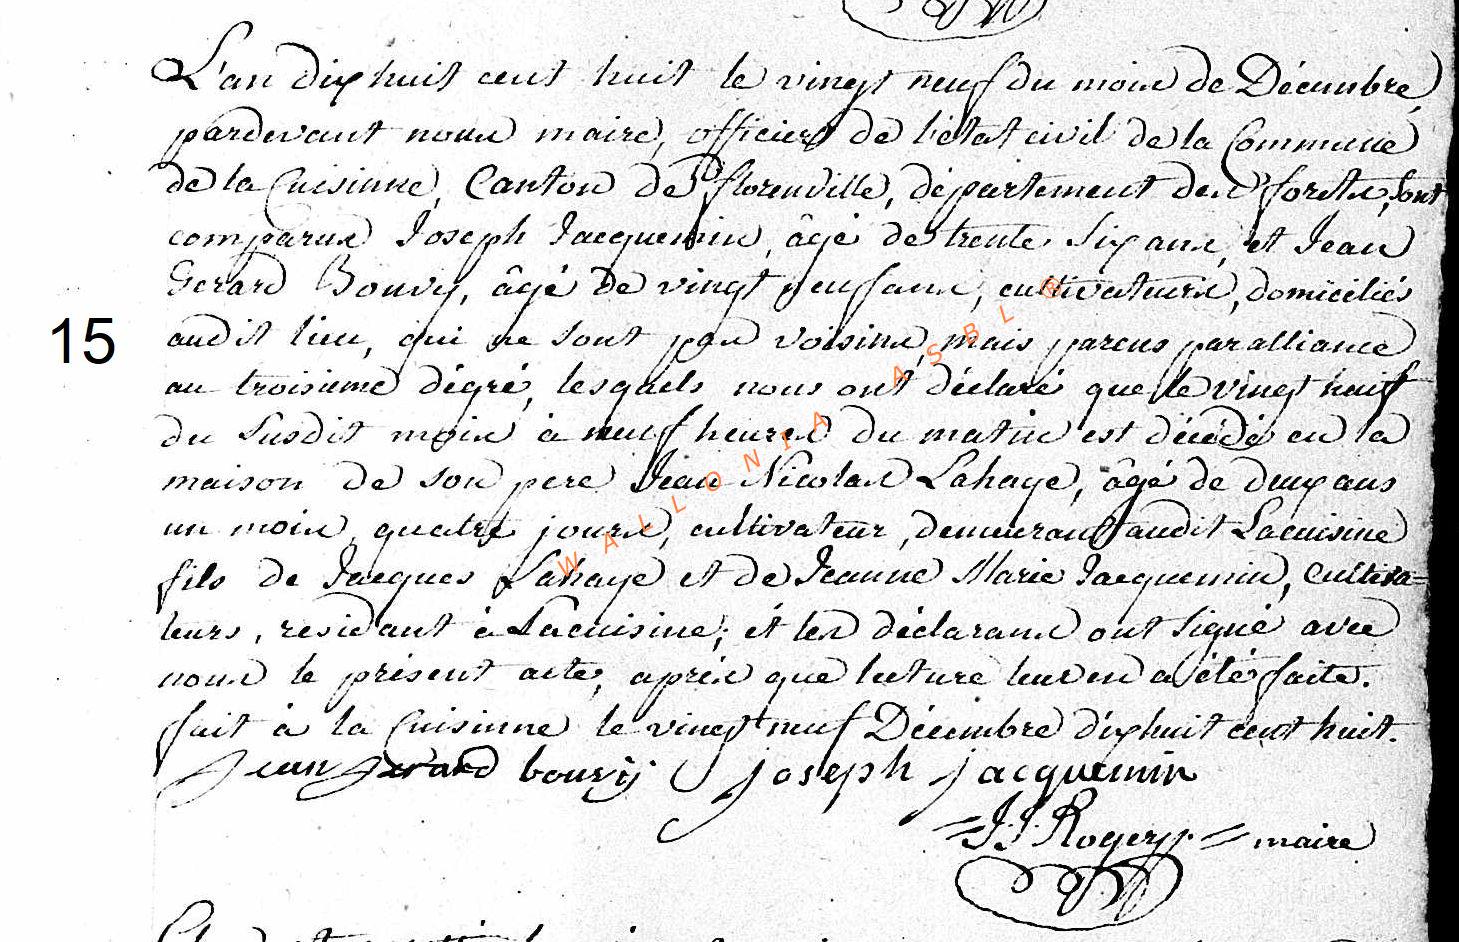 L'an dixhuit cent huit le vingt neuf du mois de Décembre,
pardevant nous maire, officier de l'état civil de la Commune
de la Cuisinne, Canton de florenville, département des forêts, sont
comparus Joseph Jacquemin, âgé de trente six ans, et Jean
Gerard Bouvy, âgé de vingt neuf ans, cultivateurs, domiciliés
audit lieu, qui ne sont pas voisins, mais parens par alliance
au troisieme dégré, lesquels nous ont déclaré que le vingt huit
du susdit mois à neuf heures du matin est décédé en la
maison de son pere Jean Nicolas Lahaye, âgé de deux ans
un mois, quatre jours, cultivateur, demeurant audit Lacuisine
fils de Jacques Lahaye et de Jeanne Marie Jacquemin, cultiva=
teurs, residant à Lacuisine; et les déclarans ont signé avec
nous le présent acte, après que lecture leur en a été faite.
fait à la Cuisinne le vingt neuf Décembre dixhuit cent huit.
Jean Gerard bouvy Joseph jacquemin
=J.J. Rogery.= maire
15
WALLONIA ASBL